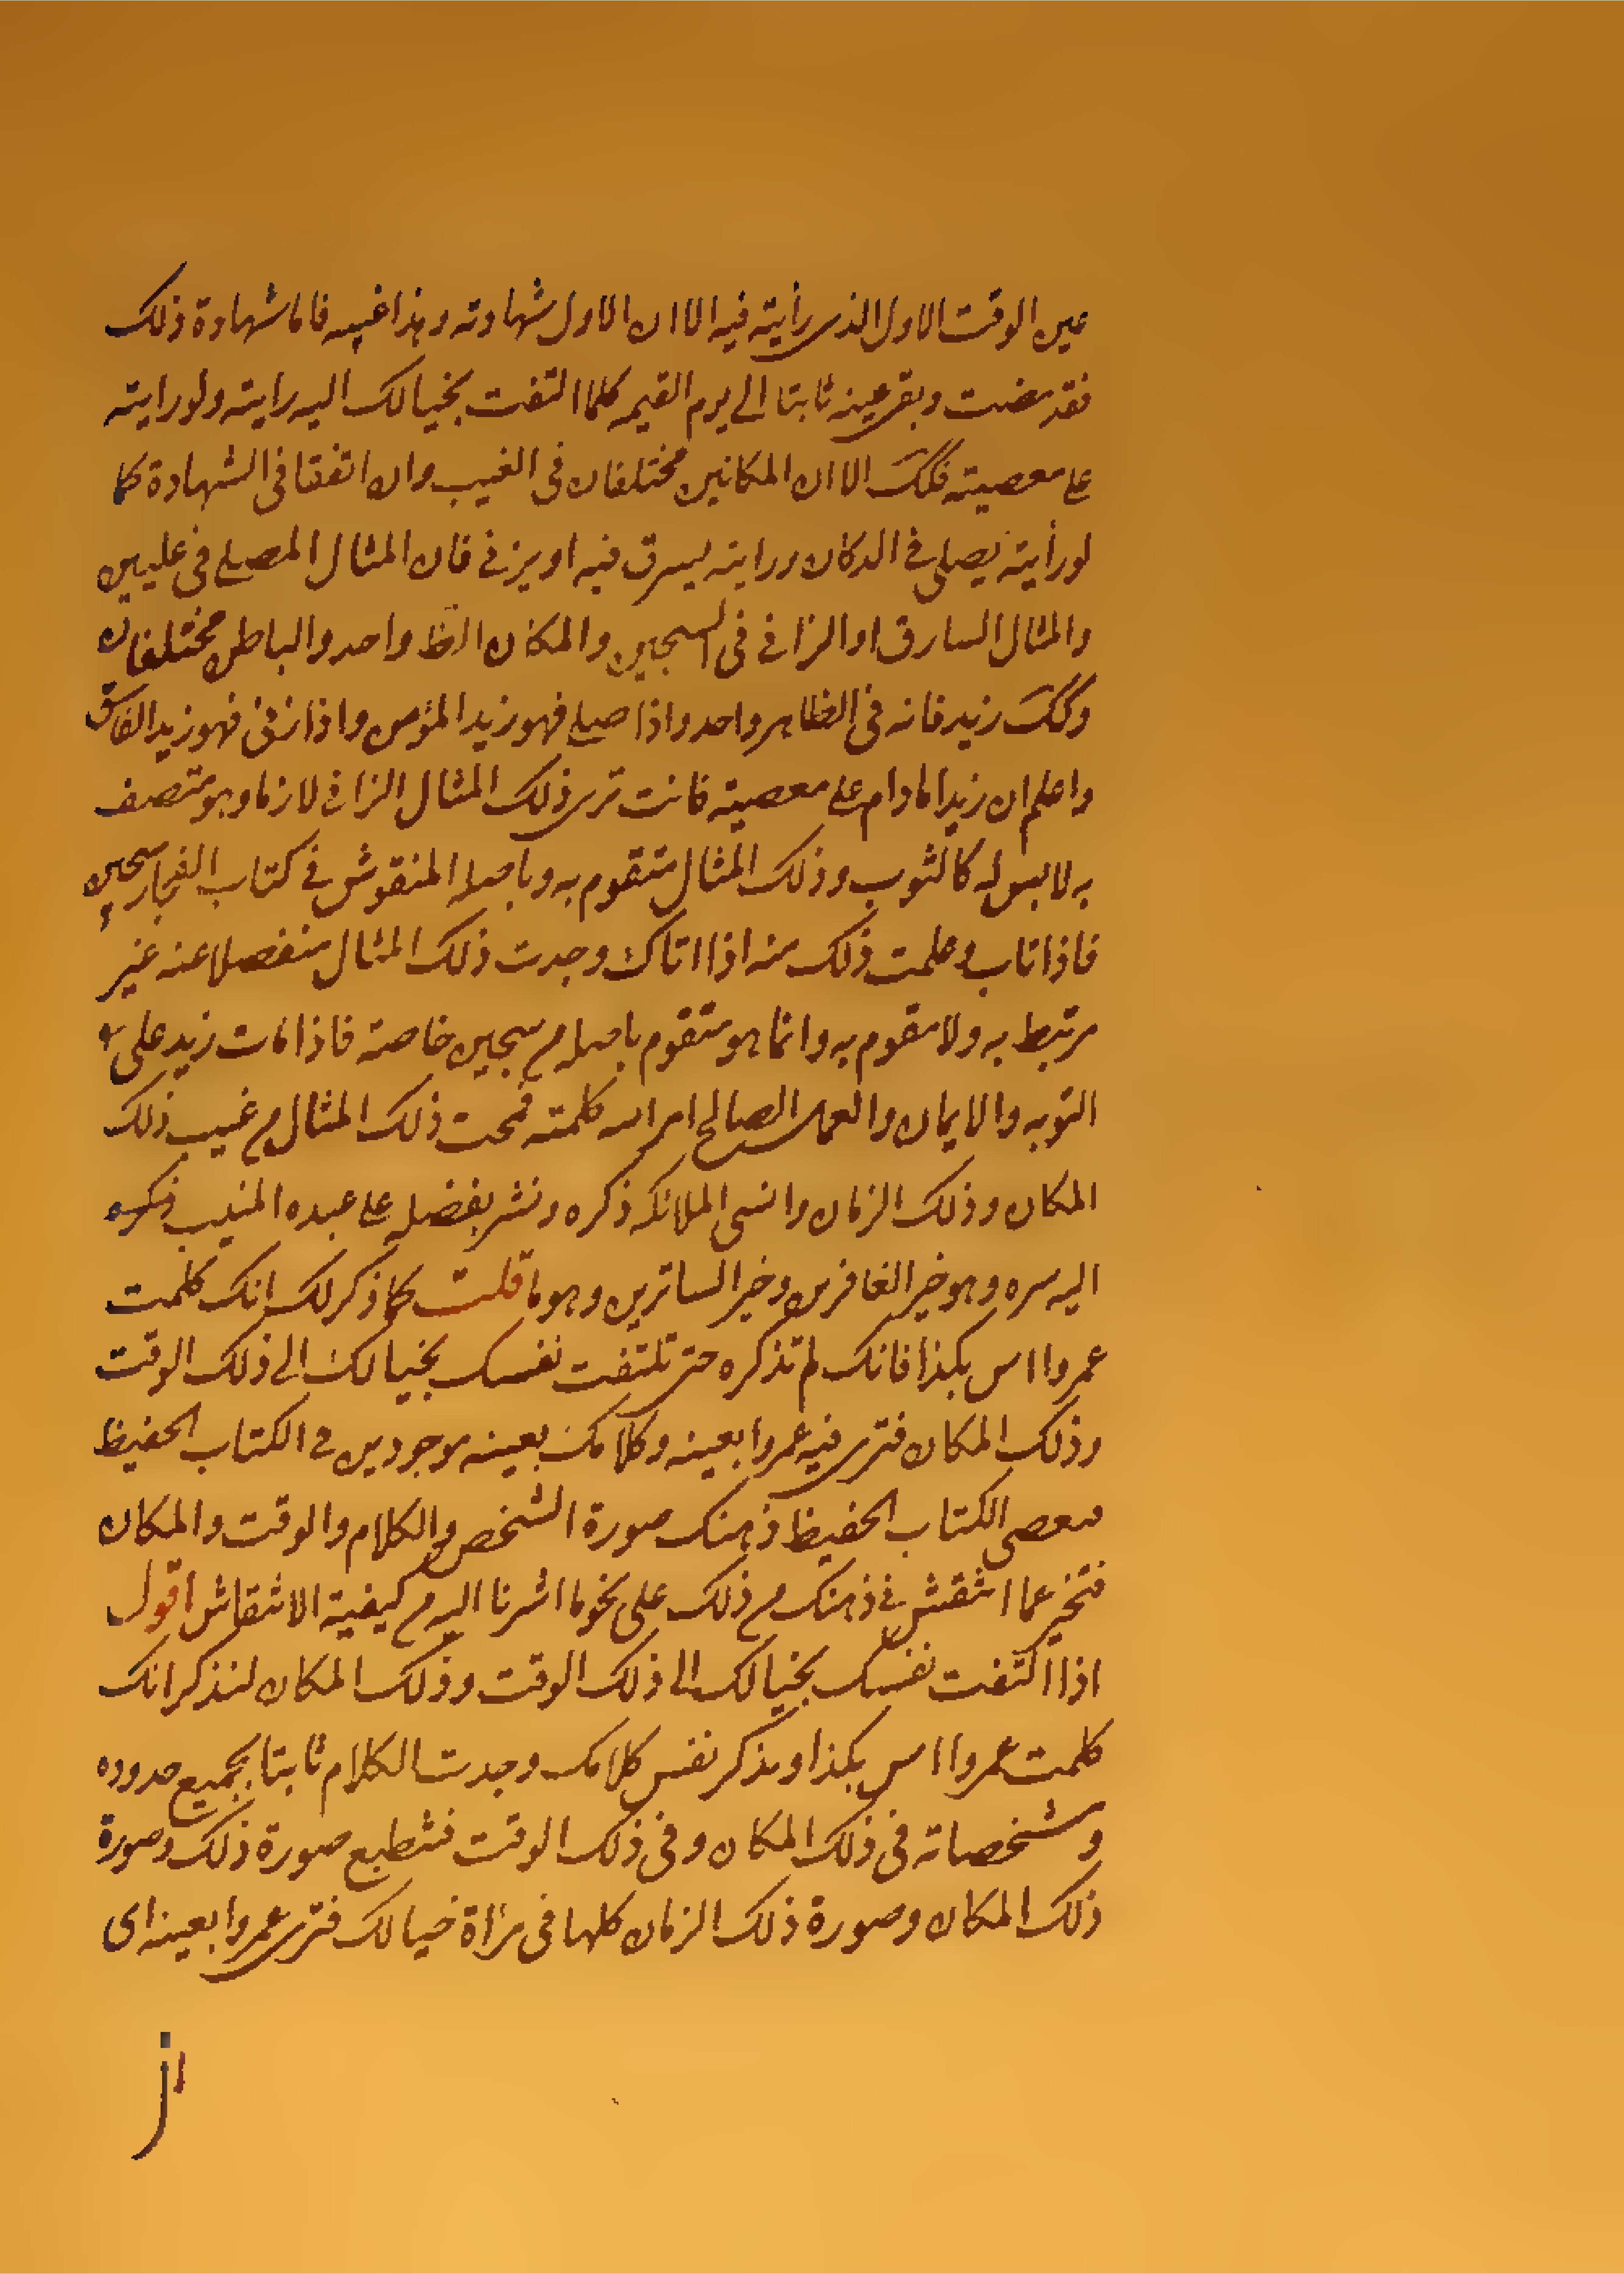 عين الوقت الاول الذى رأيته فيه الا ان الاول شهادته وهذا غيبه فاما شهادة ذلك
فقد مضت وبقى عينه ثابتا الى يوم القيمه كلما التفت بخيالك اليه رايته ولو رايته
على معصيته فكك الا ان المكانين مختلفان فى الغيب وان اتفقا فى الشهادة كما
لو رأيته يصلى فى الدكان ورايته يسرق فيه او يزنى فان المثال المصلى فى عليين
والمثال السارق او الزانى فى السجين والمكان الظ واحد والباطن مختلفان
وكك زيد فانه فى الظاهر واحد واذا صلى فهو زيد المؤمن واذا زنى فهو زيد الفاسق
واعلم ان زيدا مادام على معصيته فانت ترى ذلك المثال الزانى لازما وهو متصف
به لابس له كالثوب وذلك المثال متقوم به وباصله المنقوش فى كتاب الفجار سجين
فاذا تاب وعلمت ذلك منه اذا اتاك وجدت ذلك المثال منفصلا عنه غير
مرتبط به ولا مقوم به وانما هو متقوم باصله من سجين خاصة فاذا مات زيد على
التوبه والايمان والعمل الصالح امر الله كلمته فمحت ذلك المثال من غيب ذلك
المكان وذلك الزمان وانسى الملائكه ذكره ونشر بفضله على عبده المنيب
اليه ستره وهو خير الغافرين وخير الساترين وهو ما قلت كما ذكر لك انك كلمت
عمروا امس بكذا فانك لم تذكره حتى تلتفت نفسك بخيالك الى ذلك الوقت
وذلك المكان فترى فيه عمروا بعينه وكلامك بعينه موجودين فى الكتاب الحفيظ
الكتاب الحفيظ ذهنك صورة الشخص والكلام والوقت والمكان
فتخبر عما انتقش فى ذهنك من ذلك على نحو ما اشرنا اليه من كيفية الانتقاش اقول
اذا التفت نفسك بخيالك الى ذلك الوقت وذلك المكان لتذكر انك
كلمت عمروا امس بكذا وتذكر نفس كلامك وجدت الكلام ثابتا بجميع حدوده
ومشخصاته فى ذلك المكان وفى ذلك الوقت فتنطبع صورة ذلك وصورة
ذلك المكان وصورة ذلك الزمان كلها فى مرآة خيالك فترى عمروا بعينه اى